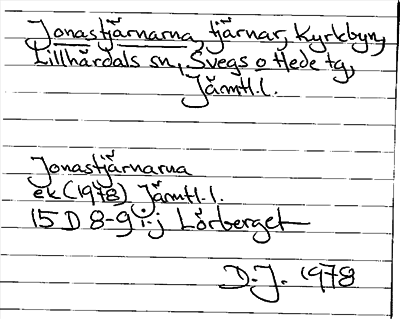 Jonastjärnarna, tjärnar, Kyrkbyn,
Lillhärdals sn, Svegs o Hede tg,
Jämtl. l.
Jonastjärnarna
ek (1978) Jämtl. l.
15 D 8-9 i-j Lörberget
D.J. 1978